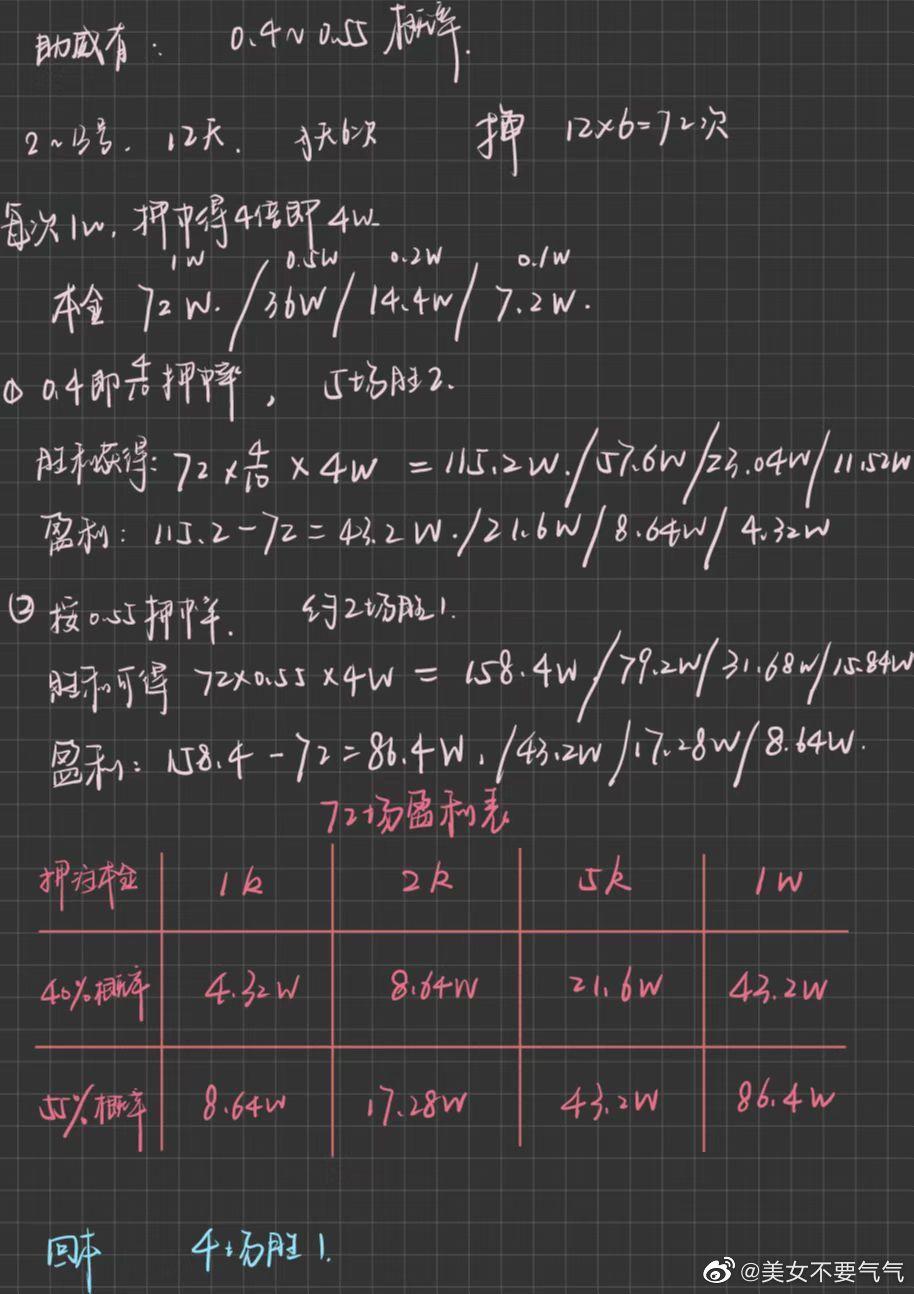 助威有： 0.4~0.55 概率.
2~13号. 12天. 每天6次 押 12×6=72次
每次1w, 押中得4倍即4w.
1W 0.5W 0.2W 0.1W
本金 72W./36W/14.4W/7.2W.
① 0.4即4/10押中率， 5场胜2.
胜利获得: 72×4/10×4W=115.2W./57.6W/23.04W/11.52W
盈利: 115.2-72=43.2W./21.6W/8.64W/4.32W
② 按0.55押中率. 约2场胜1.
胜利可得 72×0.55×4W=158.4W/79.2W/31.68W/15.84W
盈利: 158.4-72=86.4W./43.2W/17.28W/8.64W.
72场盈利表
押注本金 1k 2k 5k 1W
40%概率 4.32W 8.64W 21.6W 43.2W
55%概率 8.64W 17.28W 43.2W 86.4W
回本 4场胜1.
@美女不要气气